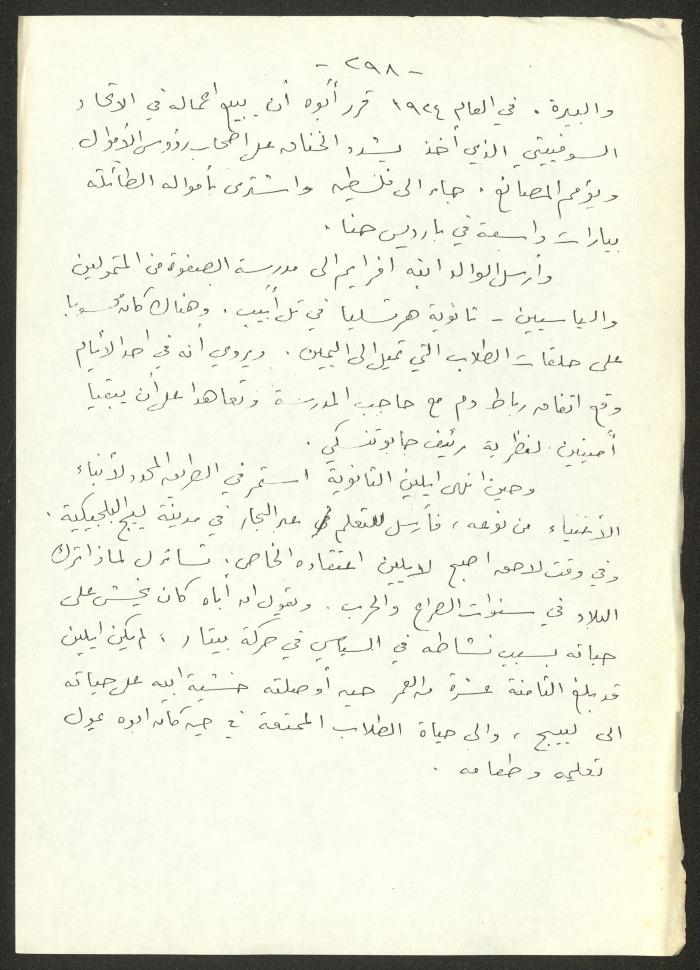 - ٢٩٨ -
والبيرة . في العام ١٩٢٤ قرر أبوه أن يبيع اعماله في الاتحاد
السوفييتي الذي أخذ يشدد الخناق على اصحاب رؤوس الأموال
ويؤمم المصانع . جاء الى فلسطين واشترى بأمواله الطائلة
بيارات واسعة في بارديس حنا .
وأرسل الوالد ابنه افرايم الى مدرسة الصفوة من المتمولين
والسياسيين - ثانوية هرتسليا في تل أبيب . وهناك كان محسوبا
على حلقات الطلاب التي تميل الى اليمين . ويروي أنه في احد الأيام
وقع اتفاق رباط دم مع حاجب المدرسة وتعاهدا على أن يبقيا
أمينين لنظرية زئيف جابوتنسكي .
وحين انهى ايلين الثانوية استمر في الطريق المحدد لأبناء
الأغنياء من نوعه ، فأرسل للتعلم عبر البحار في مدينة لييج البلجيكية .
وفي وقت لاحق اصبح لايلين اعتقاده الخاص . تساءل لماذا ترك
البلاد في سنوات الصراع والحرب . ويقول ان أباه كان يخشى على
حياته بسبب نشاطه في السياسي في حركة بيتار ، لم يكن ايلين
قد بلغ الثامنة عشرة من العمر حين أوصلته خشية ابيه على حياته
الى لييج ، والى حياة الطلاب الممتعة في حين كان ابوه يمول
تعليمه وطعامه .